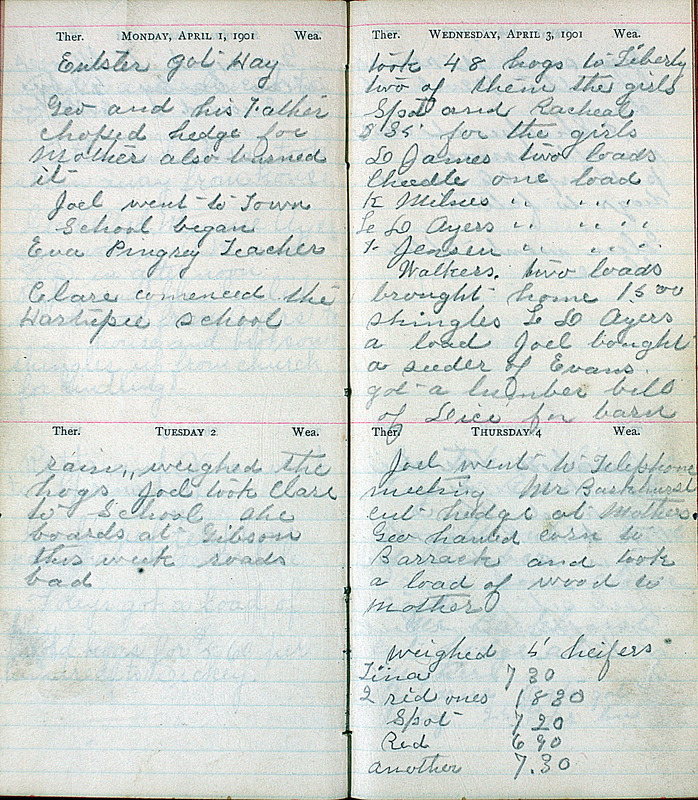 Ther. MONDAY, APRIL 1, 1901 Wea.
got Hay
Geo and his Father
choped hedge for
Mother also burned
it
Joel went to Town
School began
Eva Pingrey Teacher
Clare comenced the
school
Ther. TUESDAY 2 Wea.
rain,, weighed the
hogs Joel took Clare
to School she
boards at Gibson
this week roads
bad
Ther. WEDNESDAY, APRIL 3, 1901 Wea.
took 48 hogs to Liberty
two of them the girls
Spot and Racheal
for the girls
James two loads
Cheedle one load
K " " " "
Le D Ayers " " " "
Jensen " " " "
Walkers. two loads
brought home 1500
shingles Le D Ayers
a load Joel bought
a seeder of Evans.
got a lumber bill
of for barn
Ther. THURSDAY 4 Wea.
Joel went to Telephone
meeting Mr
cut hedge at Mothers
Geo hauled corn to
Barrack and took
a load of wood to
Mother
weighed 5 heifers
Tina 730
2 red ones 1830
Spot 720
Red 690
another 7.30